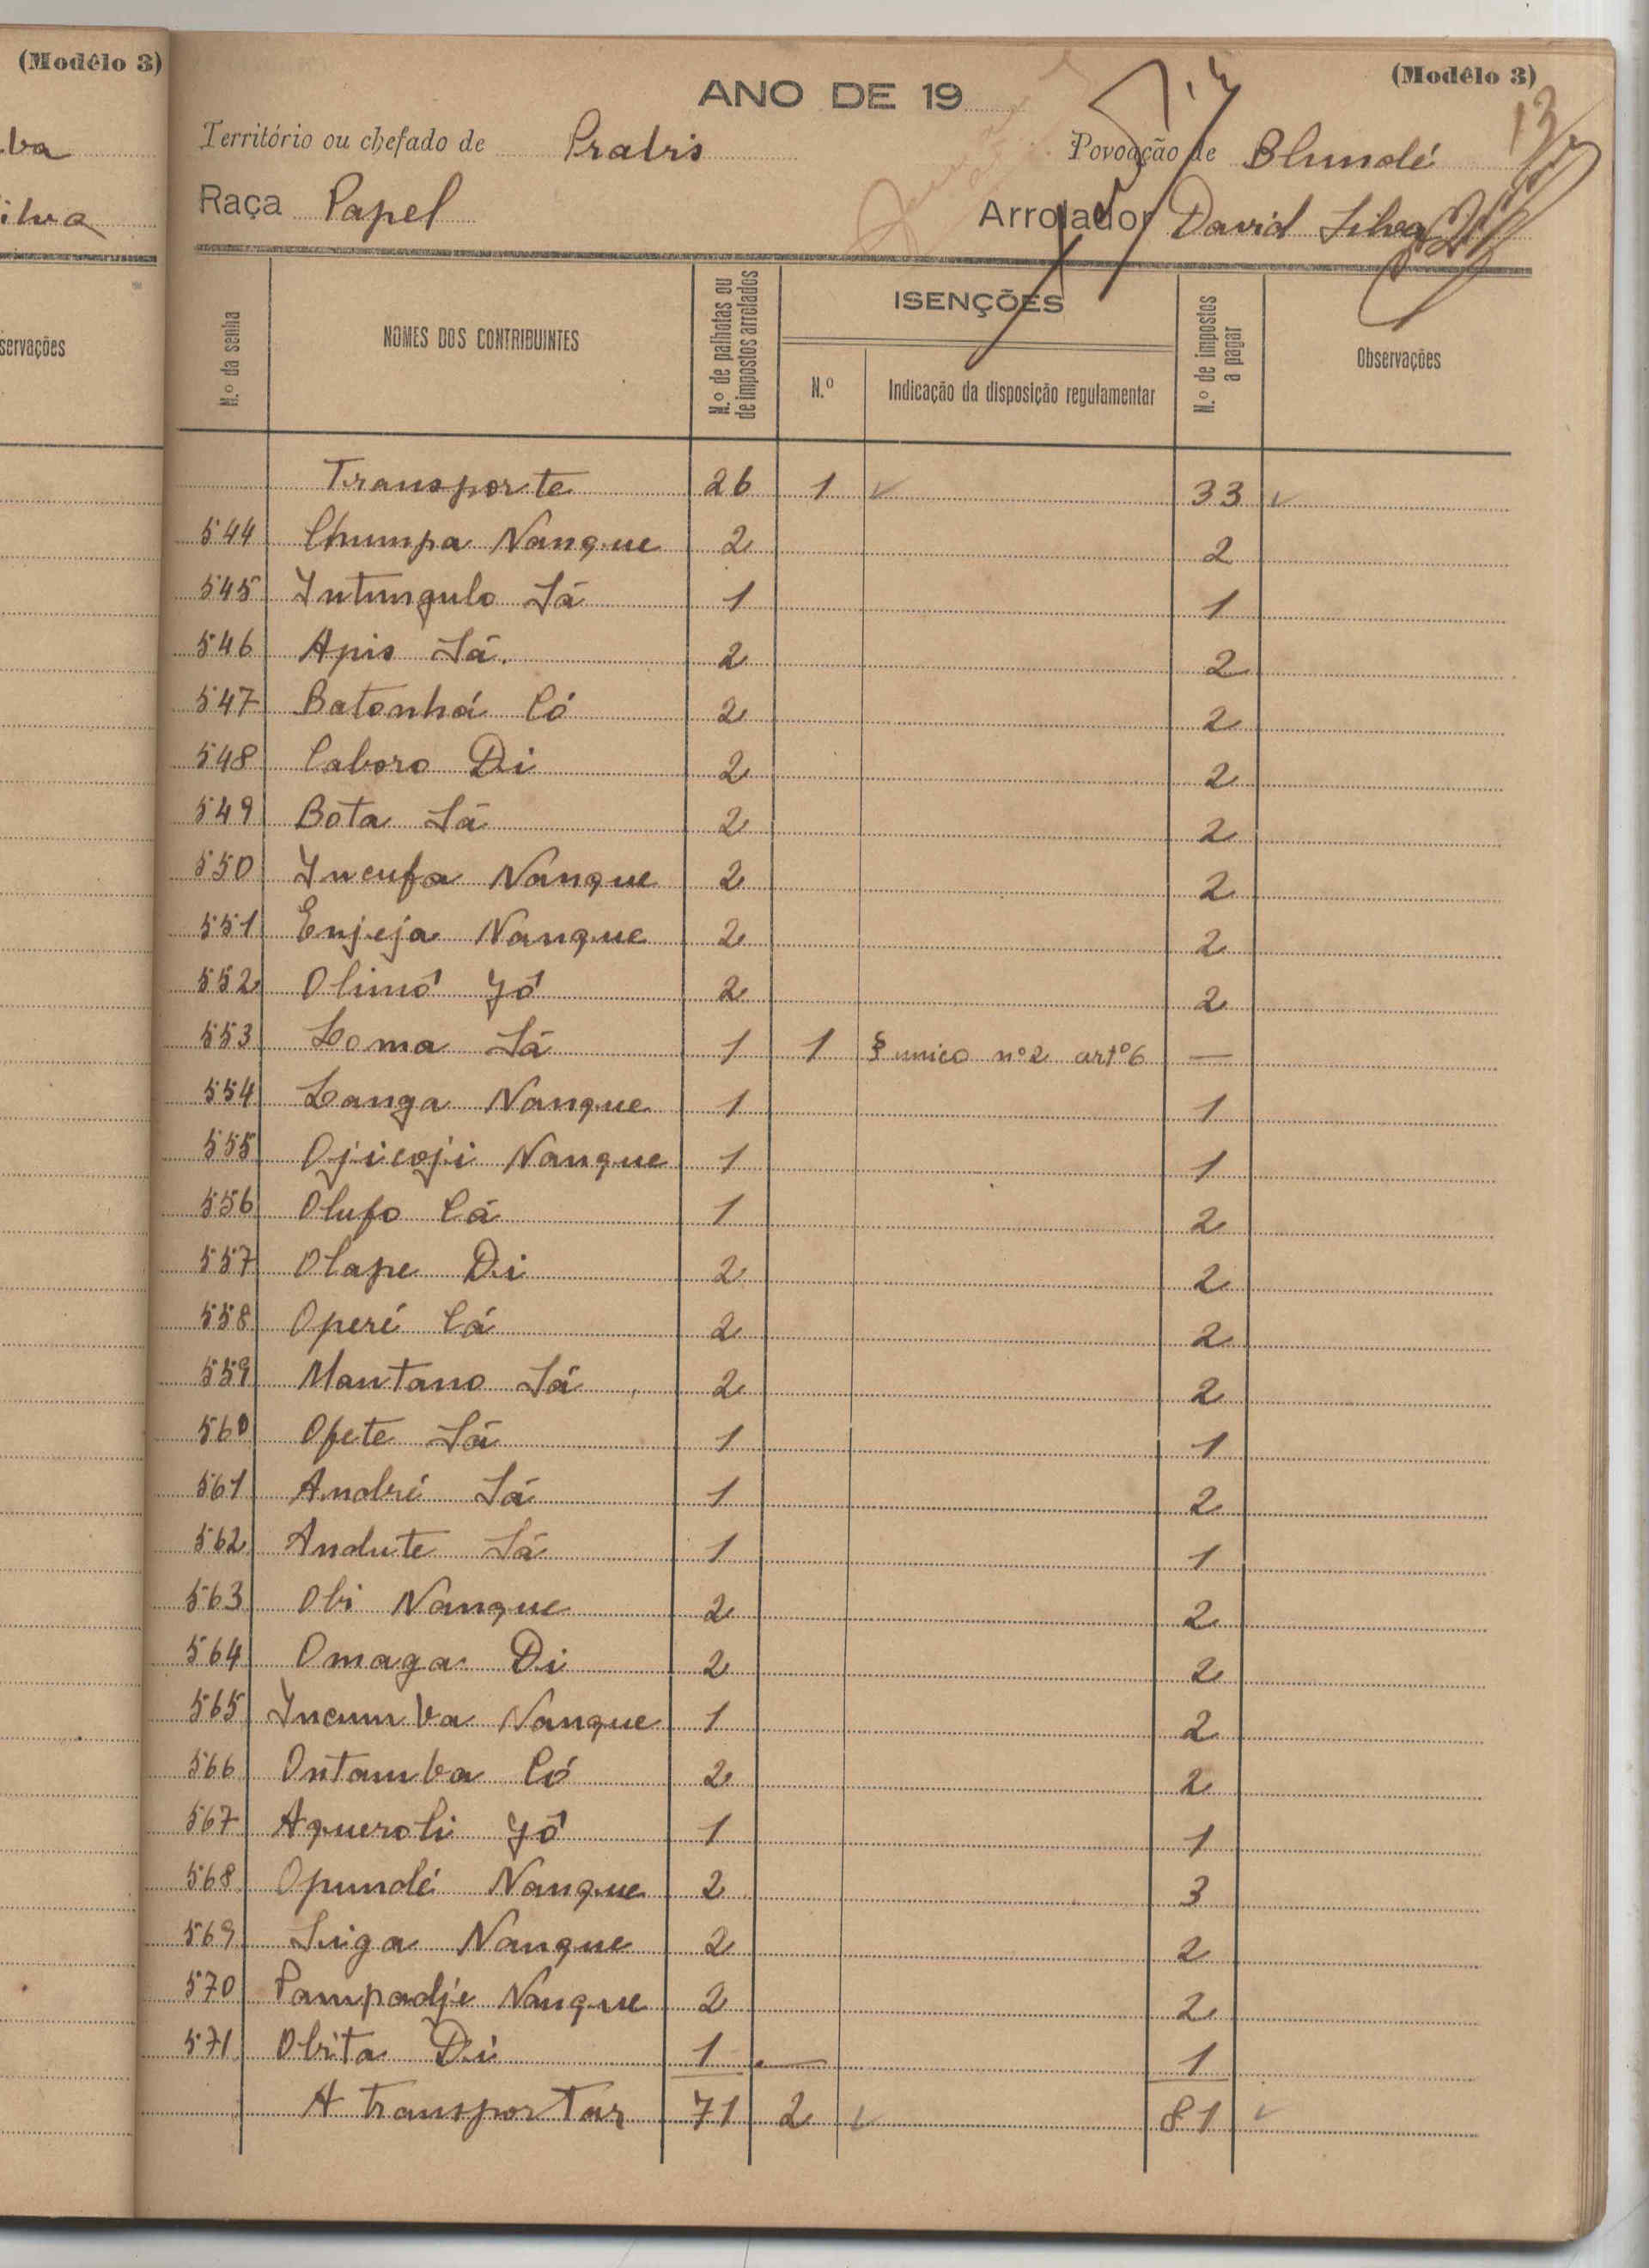 (Modêlo 3)
ba
ilva
servações
(Modêlo 3)
13
ANO DE 19
Território ou chefado de Prabis Povoação de Blundé
Raça Papel Arrolador David Silva
N.º da senha NOMES DOS CONTRIBUINTES N.º de palhotas ou de impostos arrolados ISENÇÕES N.º de impostos a pagar Observações
N.º Indicação da disposição regulamentar
Transporte 26 1 ✓ 33 ✓
544 Chumpa Nanque 2 2
545 Intungulo Sá 1 1
546 Apis Sá 2 2
547 Batonhá Có 2 2
548 Caboro Di 2 2
549 Bota Sá 2 2
550 Incufa Nanque 2 2
551 Enjeja Nanque 2 2
552 Olimó Jó 2 2
553 Loma Sá 1 1 § unico nº2 artº6 —
554 Langa Nanque 1 1
555 Ojicoji Nanque 1 1
556 Olufo Cá 1 2
557 Olape Di 2 2
558 Operé Cá 2 2
559 Mantano Sá 2 2
560 Ofete Sá 1 1
561 André Sá 1 2
562 Andute Sá 1 1
563 Obi Nanque 2 2
564 Omaga Di 2 2
565 Incumba Nanque 1 2
566 Ontamba Có 2 2
567 Aqueroli Jó 1 1
568 Opundé Nanque 2 3
569 Siga Nanque 2 2
570 Pampadje Nanque 2 2
571 Obita Di 1 — 1
A transportar 71 2 ✓ 81 ✓